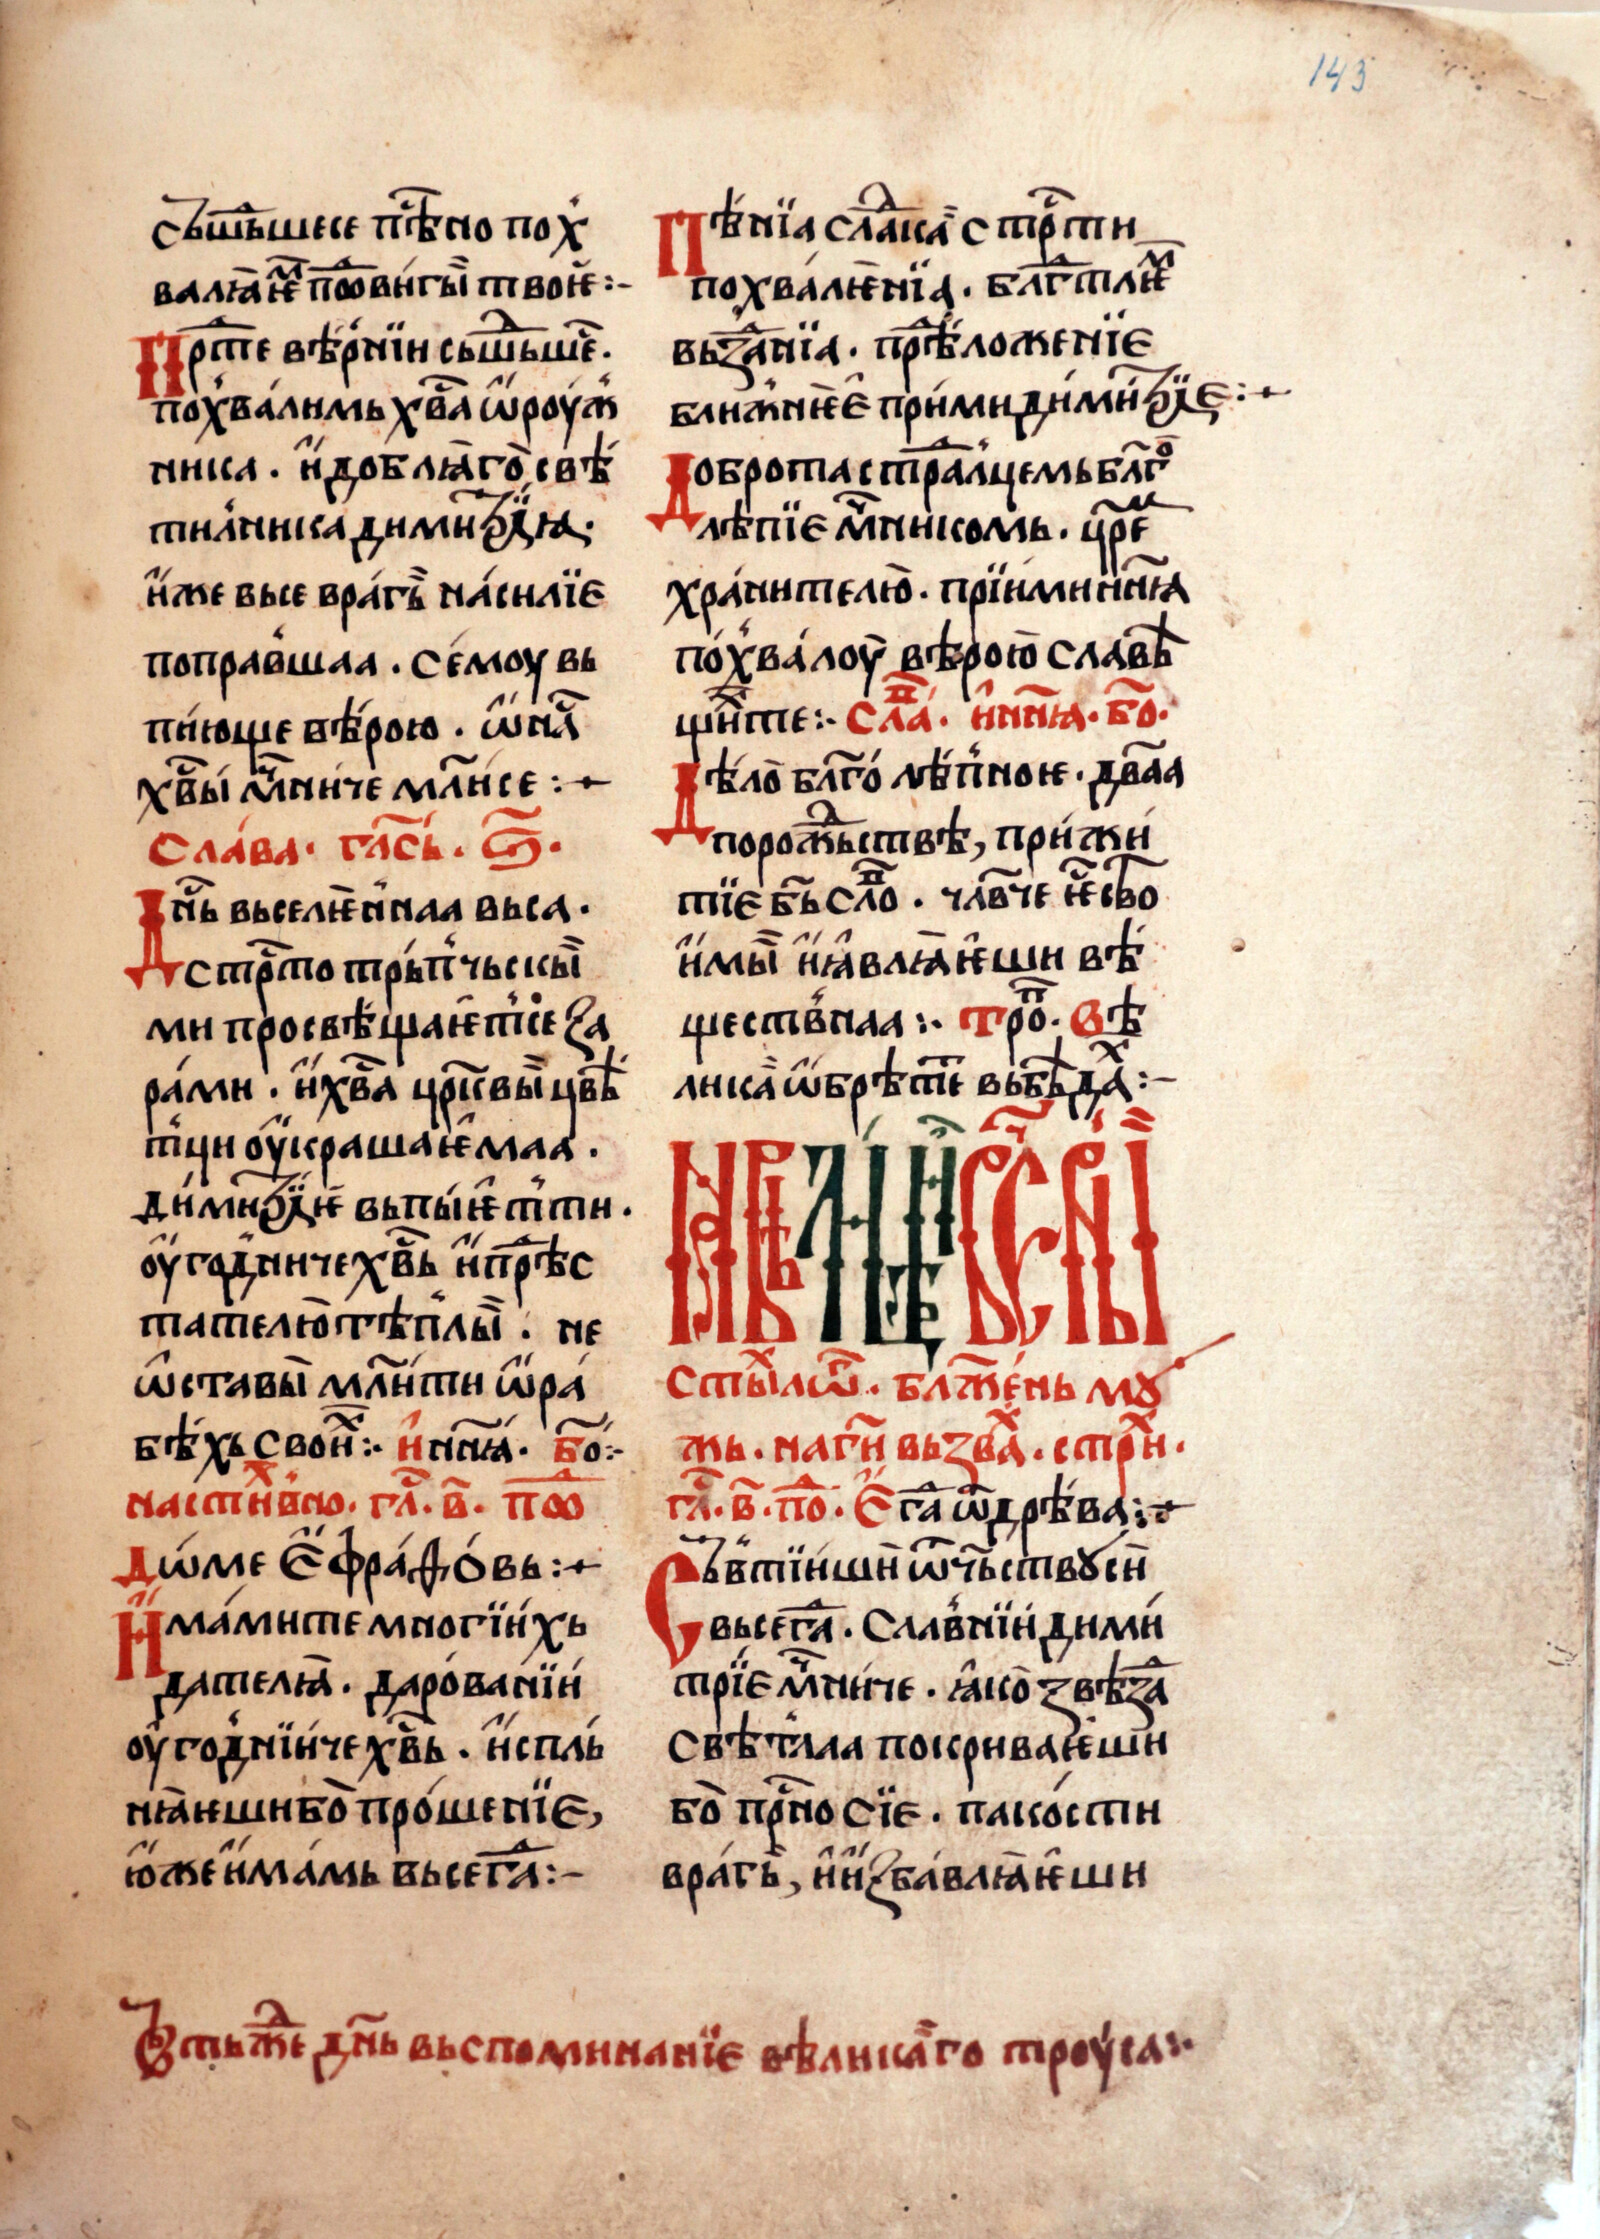 143
сьшьⷣшесе пѣⷭ҇но пох
валꙗ́ѥⷨ поⷣви́гы̏ твоѥ̏:-
Прⷣте вѣ́рнїи сьшьⷣше.
похва́лимь хв҃а ѡ̑роуж
ника. и̑ доблꙗ̏го̀ свѣ́
тилника димитрїа.
и̑же вьсе вра́гѣ̏ на́силїе
попра́вшаа. се́моу вь
пи́юще вѣ́рою. ѡ̑ наⷭ҇
хв҃ы̀ мч҃ни́че мл҃и́се:-
Сла́ва. гла́сь. ѕ҃.
Дн҃ь вьселѥ́ннаа вьса.
страⷭ҇тотрьпⸯчьскы̏
ми просвѣщаѥт̾се за
ра́ми. и̑ хв҃а цр҃квы̏ цвѣ́
т̾ци оу̑кра́шаѥмаа.
ди́митрїѥ вьпы́ѥт̾ ти.
оу̑го́дниче хв҃ь и̑ прѣⷣс
тателю̀ тѣ́плы̏. не
ѡ̑ставы̏ мл҃и́ти ѡ̑ ра́
бѣ́хь свои̑ⷯ:. и̑ нн҃ꙗ. бо҃:-
настиⷯвно. глⷭ҇. в҃. поⷣ
дѡ́ме е̑фра́ѳовь:-
И̑ма́мите мно́гїи́хь
да́телꙗ̏. даро́ванїи́
оу̑го́днїи́че хв҃ь. и̑спль
нꙗ̏ѥши бо̀ про́шенїе,
ю̑же и̑ма́мь вьсегⷣа:-
Пѣ́нїа слаⷣка̏ страⷭ҇ти
похва́лѥнїа. блгⷣтлѥⷨ
вьзⷣанїа. прѣⷣложенїе
ближнѥе̑ при́ми ди́митрїе:-
Доброта страⷣалцемь бл҃го
лѣ́пїе мч҃никомь. цр҃еⷨ
хра́нителю̀. прїими нн҃ꙗ
по́хва́лоу̏ вѣ́рою̀ славѣ
щи́ⷯте:. Слаⷡ. и̑ нн҃ꙗ. бо҃.
Дѣ́ло̀ бл҃го́ лѣ́пноѥ. дв҃аа
порожⷣьствѣ, при́жи́
тїе бь҃ сло́ⷡ. члв҃че ѥ̑ство
и̑мы̏ и̑ꙗ̑влꙗ̏ѥши вѣ́
ществнаа:. Троⷫ. Вѣ́
лика̏ ѡ̑брѣте вь бѣдаⷯ:-
стыⷯлѡⷡ. бл҃же́нь моу
жь. на ги҃ вьзваⷯ. стриⷯ.
глⷭ҇. в҃. поⷣ. Е̑гⷣа ѡⷮ дрѣ́ва:-
Сьвтїи́ши̏ ѡ̑чьствоу си̏
вьсегⷣа. Славнїи́ ди́ми́
трїе мч҃ни́че. ꙗ̑ко̀ звѣзⷣа
свѣ́тлаа покрива́ѥши
бо̀ прⷭ҇но сїе. пако́сти
вра́гь̏, и̑ и̑зба́влꙗ̏ѥши
Вь тьжⷣе дн҃ь вьспоминанїе вѣлика̏го троу́са:.